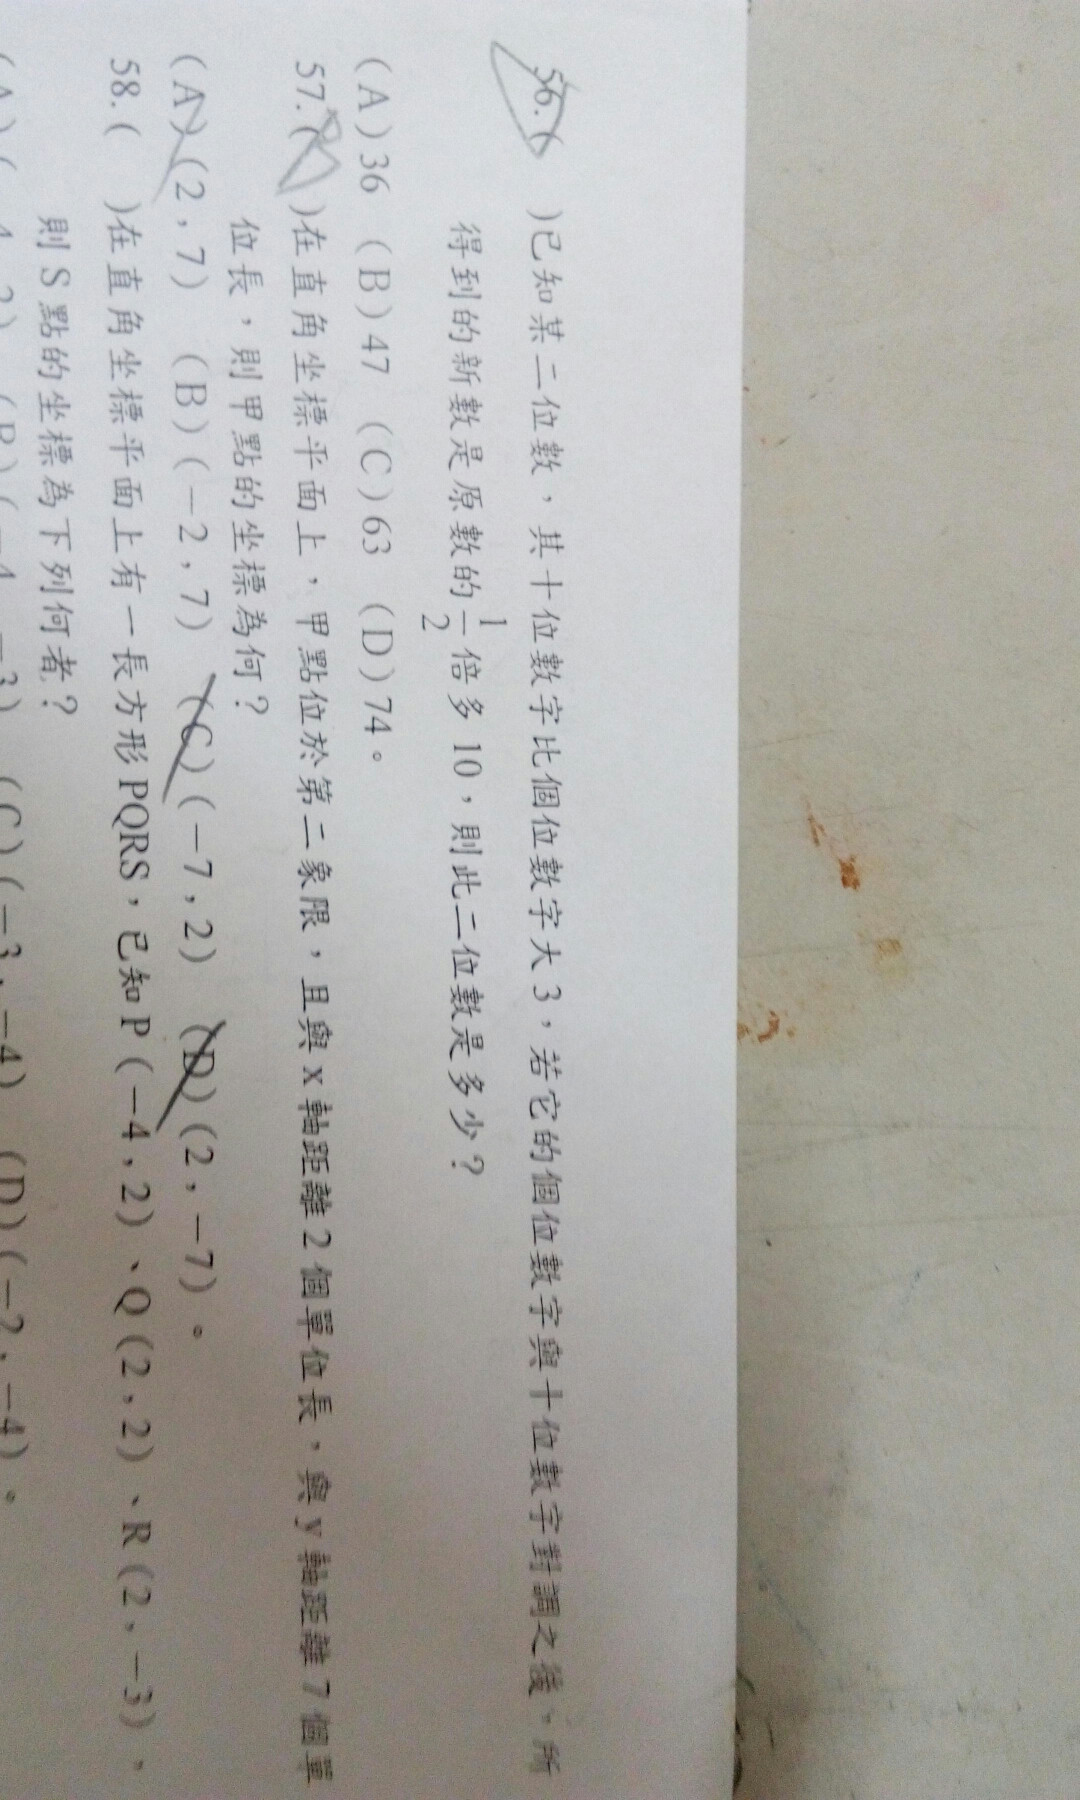 56.( )已知某二位數，其十位數字比個位數字大3，若它的個位數字與十位數字對調之後，所
得到的新數是原數的1/2倍多10，則此二位數是多少？
(A)36 (B)47 (C)63 (D)74。
57.( )在直角坐標平面上，甲點位於第二象限，且與x軸距離2個單位長，與y軸距離7個單
位長，則甲點的坐標為何？
(A)(2，7) (B)(－2，7) (C)(－7，2) (D)(2，－7)。
58.( )在直角坐標平面上有一長方形PQRS，已知P(－4，2)、Q(2，2)、R(2，－3)，
則S點的坐標為下列何者？
(B)(－4，－3) (C)(－3，－4) (D)(－2，－4)。